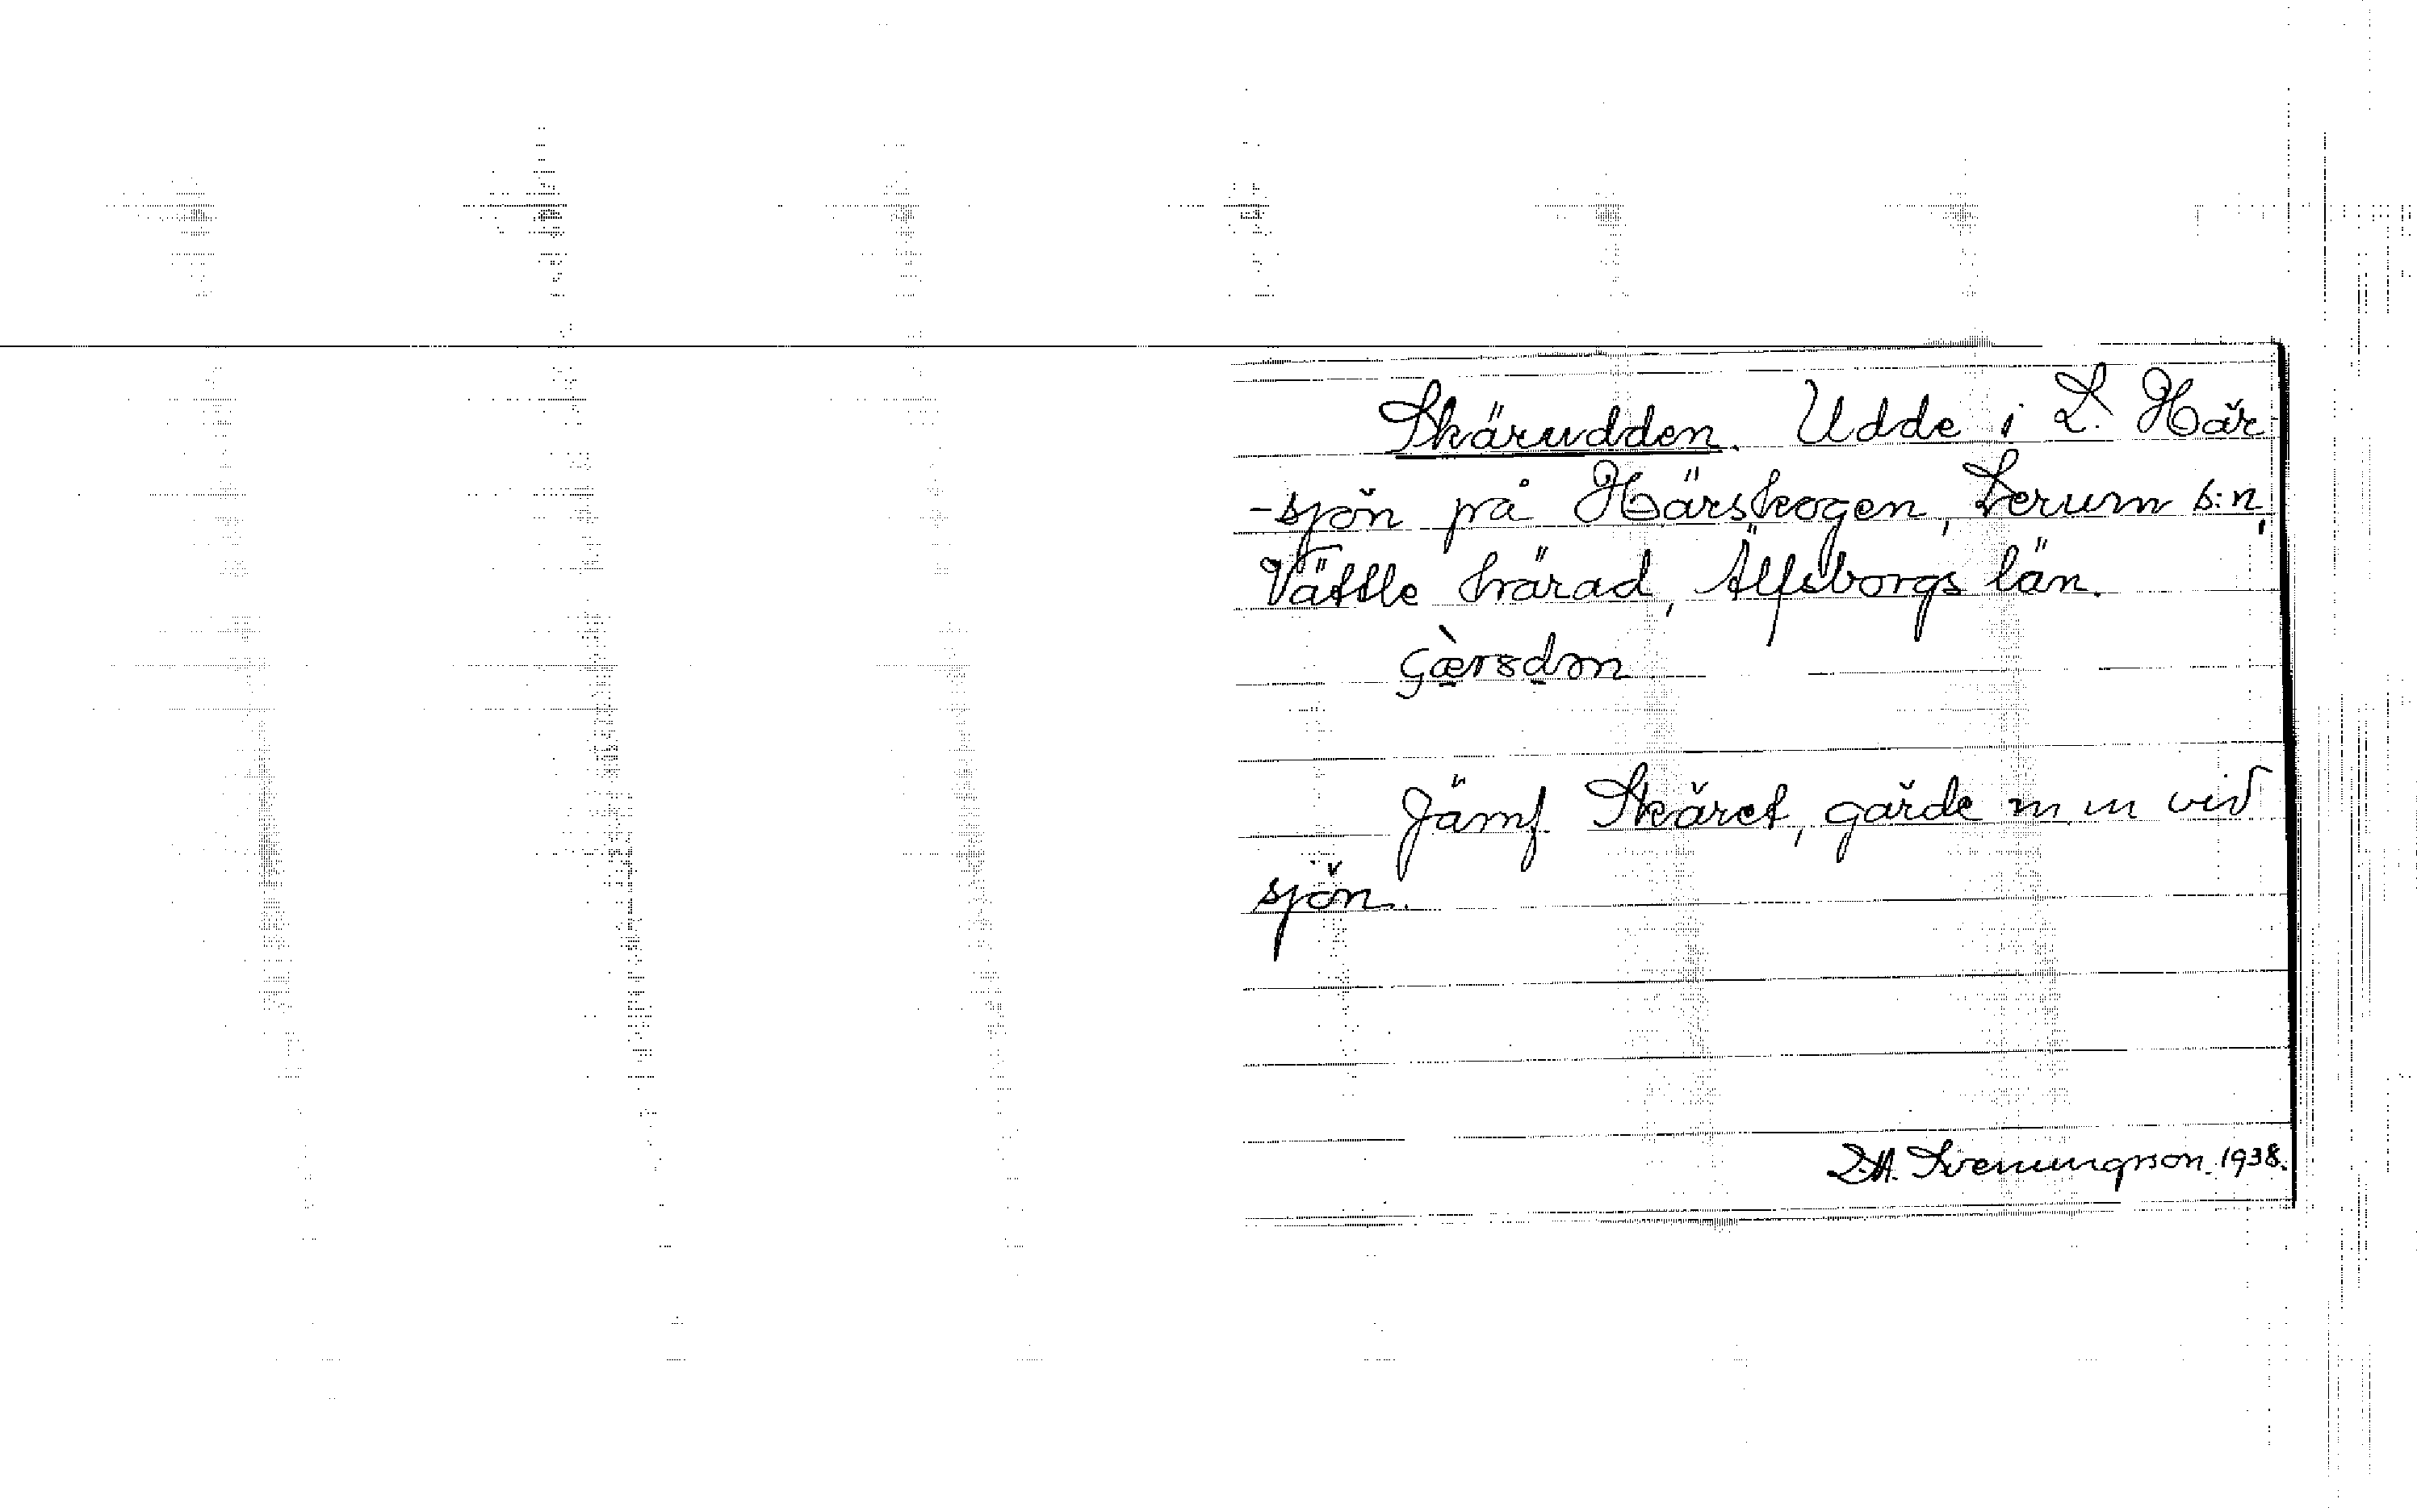 Skärudden. Udde i L. Här-
-sjön på Härskogen, Lerum s:n,
Vättle härad, Älfsborgs län.
Jämf. Skäret, gärde m. m vid
sjön.
Svenungsson 1938.